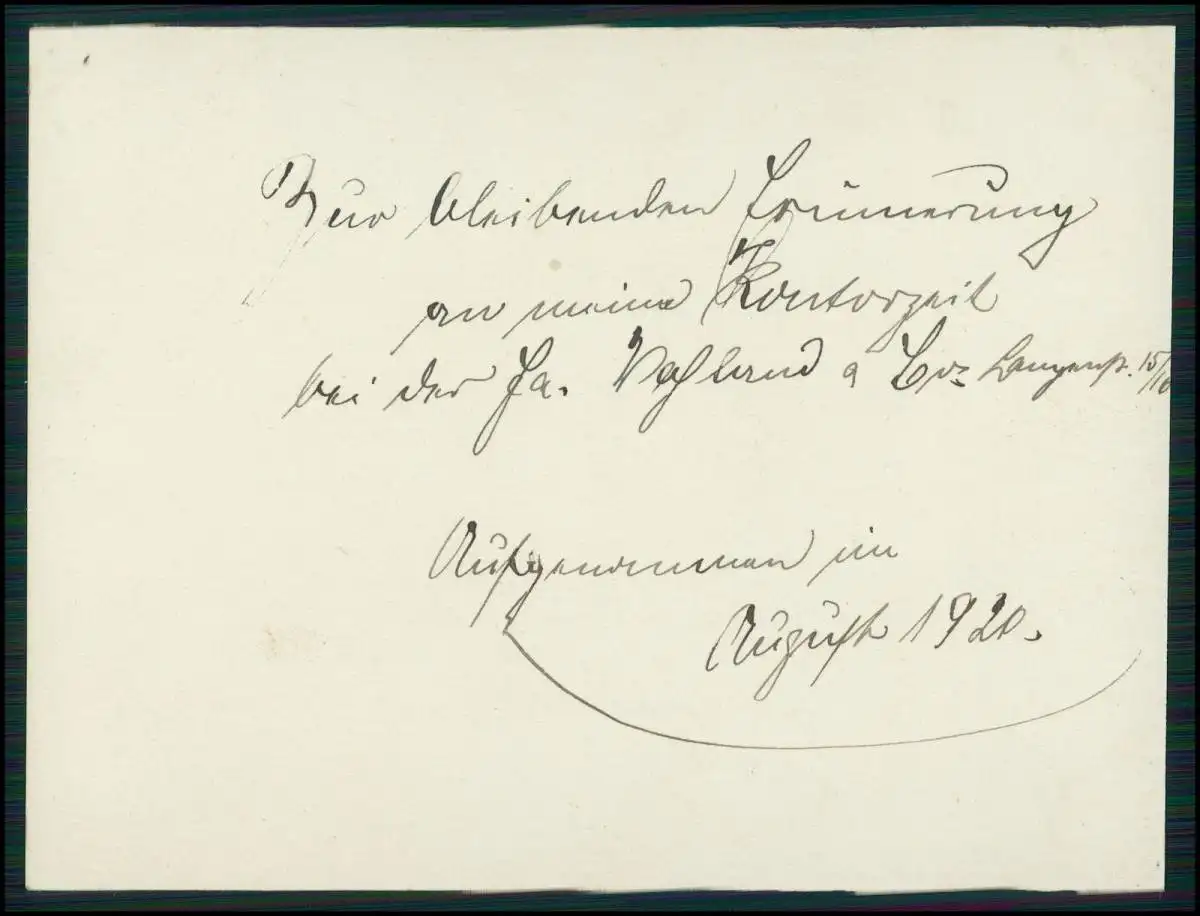 Zur bleibenden Erinnerung
an meine Kontorzeit
bei der Fa. Vahland & Co. Langenstr. 15/16
Aufgenommen im
August 1920.